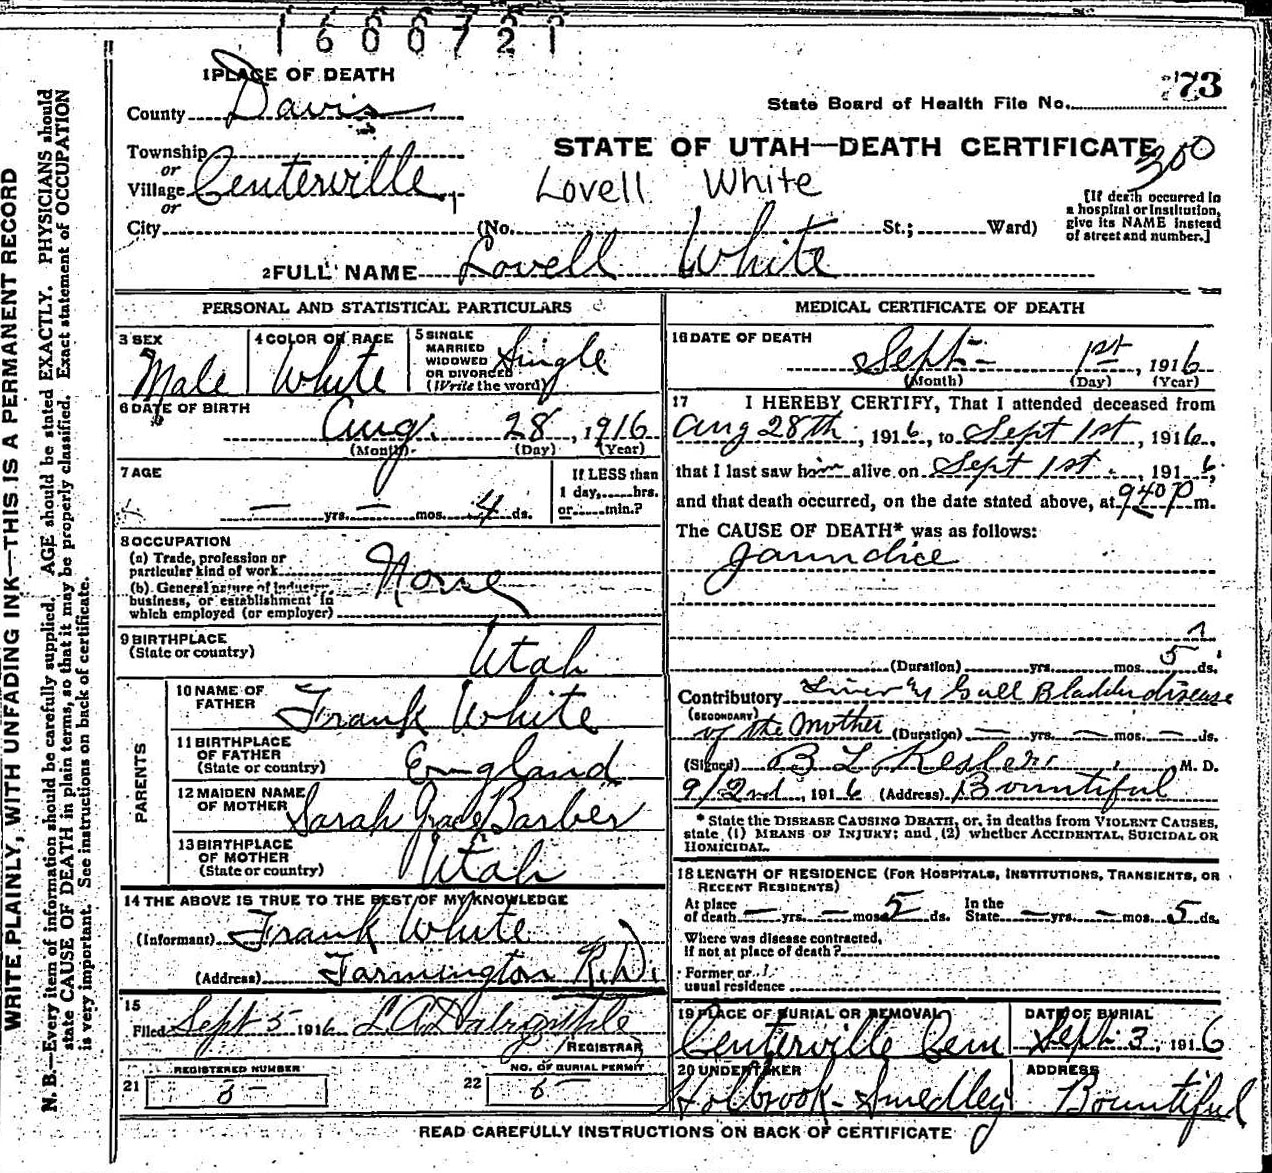 1600721
1 PLACE OF DEATH
County Davis
State Board of Health File No. 73
STATE OF UTAH—DEATH CERTIFICATE
300
Township
or
Village Centerville,
or
Lovell White
[If death occurred in
a hospital or institution,
give its NAME instead
of street and number.]
City (No. St.; Ward)
2 FULL NAME Lovell White
PERSONAL AND STATISTICAL PARTICULARS
3 SEX
Male
4 COLOR OR RACE
White
5 SINGLE
MARRIED
WIDOWED
OR DIVORCED
(Write the word)
Single
6 DATE OF BIRTH
Aug. 28, 1916
(Month) (Day) (Year)
7 AGE
— yrs. — mos. 4 ds.
If LESS than
1 day, hrs.
or min.?
8 OCCUPATION
(a) Trade, profession or
particular kind of work
(b) General nature of Industry,
business, or establishment in
which employed (or employer)
None
9 BIRTHPLACE
(State or country)
Utah
PARENTS
10 NAME OF
FATHER
Frank White
11 BIRTHPLACE
OF FATHER
(State or country)
England
12 MAIDEN NAME
OF MOTHER
Sarah Grace Barber
13 BIRTHPLACE
OF MOTHER
(State or country)
Utah
14 THE ABOVE IS TRUE TO THE BEST OF MY KNOWLEDGE
(Informant) Frank White
(Address) Farmington R.D.1
15
Filed Sept 5 1916 L A Dalrymple
REGISTRAR
REGISTERED NUMBER
21
NO. OF BURIAL PERMIT
22
MEDICAL CERTIFICATE OF DEATH
16 DATE OF DEATH
Sept— 1st, 1916
(Month) (Day) (Year)
17 I HEREBY CERTIFY, That I attended deceased from
Aug 28th, 1916, to Sept 1st, 1916,
that I last saw him alive on Sept 1st, 1916,
and that death occurred, on the date stated above, at 940 P m.
The CAUSE OF DEATH* was as follows:
Jaundice
(Duration) yrs. mos. 5 ds.
Contributory Liver & Gall Bladder disease
(SECONDARY)
of the Mother (Duration) — yrs. — mos. — ds.
(Signed) B L Kesler, M. D.
9/2nd, 1916 (Address) Bountiful
* State the DISEASE CAUSING DEATH, or, in deaths from VIOLENT CAUSES,
state (1) MEANS OF INJURY; and (2) whether ACCIDENTAL, SUICIDAL OR
HOMICIDAL.
18 LENGTH OF RESIDENCE (FOR HOSPITALS, INSTITUTIONS, TRANSIENTS, OR
RECENT RESIDENTS)
At place
of death — yrs. — mos. 5 ds.
In the
State — yrs. — mos. 5 ds.
Where was disease contracted,
if not at place of death?
Former or
usual residence
19 PLACE OF BURIAL OR REMOVAL
Centerville Cem
DATE OF BURIAL
Sept. 3, 1916
20 UNDERTAKER
Holbrook-Smedley
ADDRESS
Bountiful
READ CAREFULLY INSTRUCTIONS ON BACK OF CERTIFICATE
WRITE PLAINLY, WITH UNFADING INK—THIS IS A PERMANENT RECORD
N. B.—Every item of information should be carefully supplied. AGE should be stated EXACTLY. PHYSICIANS should
state CAUSE OF DEATH in plain terms, so that it may be properly classified. Exact statement of OCCUPATION
is very important. See instructions on back of certificate.